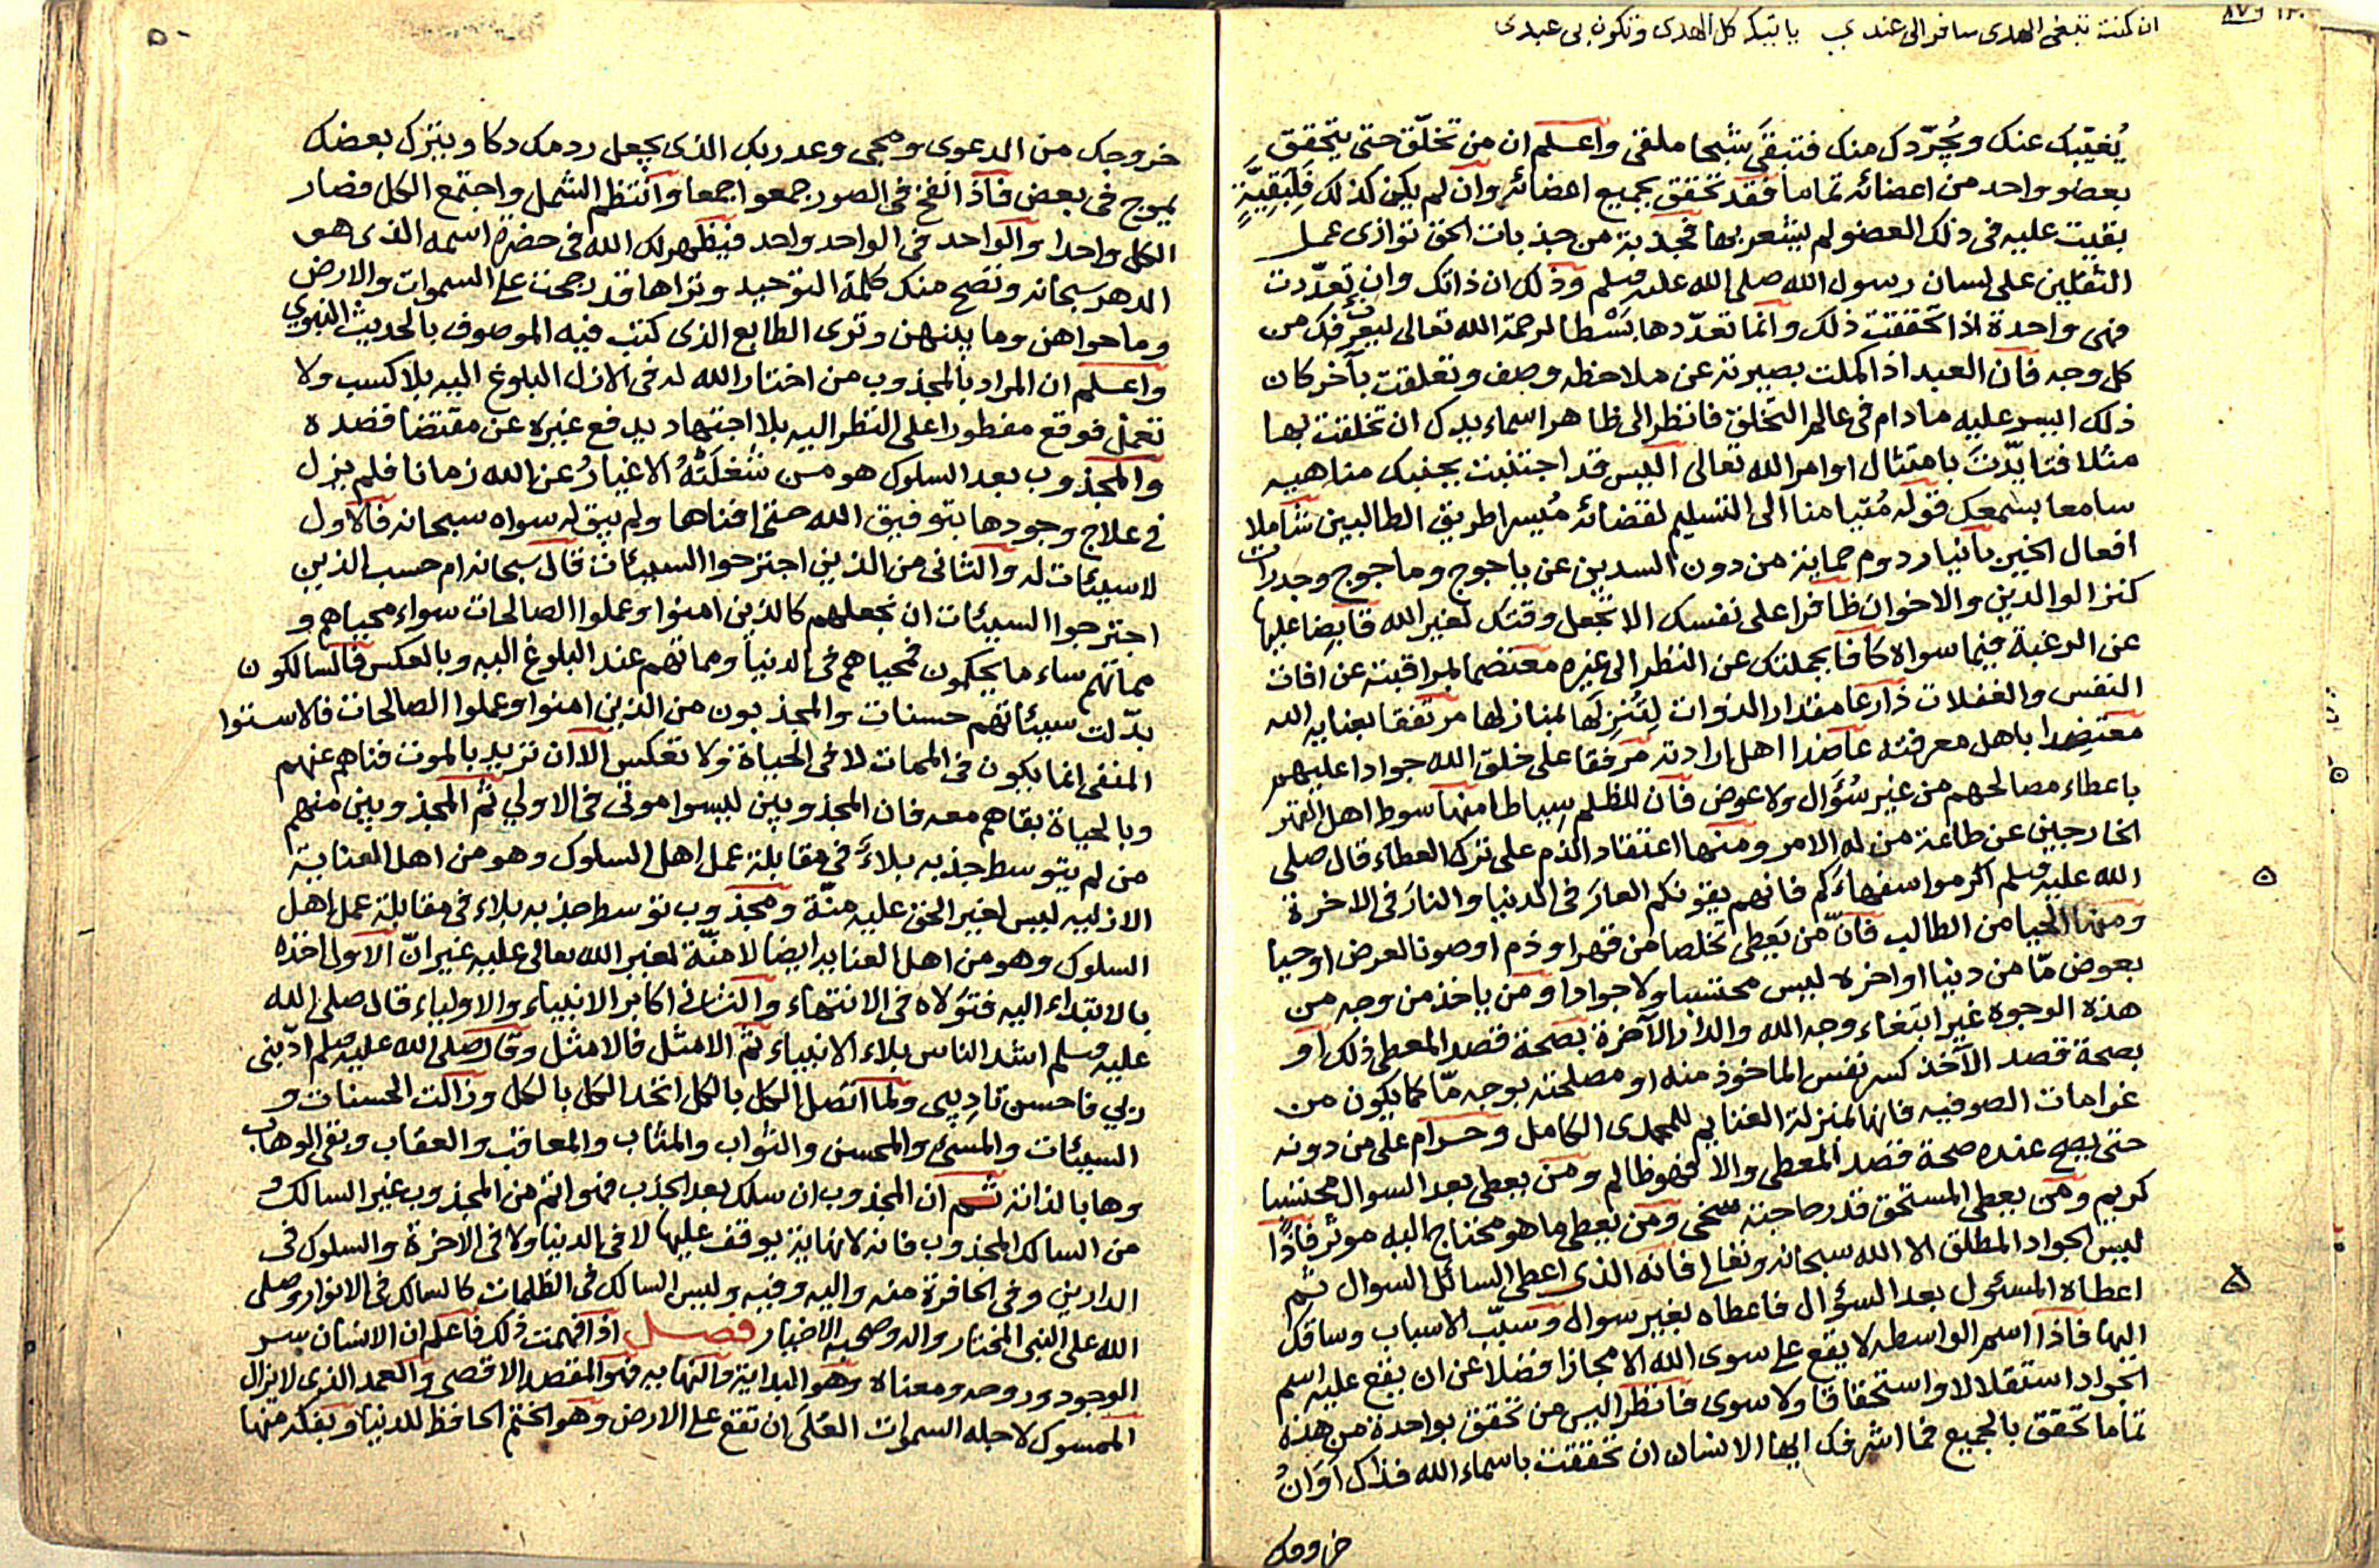 ان كنت تبغى الهدى سافر الى عندي يا بتيك كل الهدى وتكون بى عبدى
يُغيّبُك عنك ويُجرّدك منك فتبقى شبحا ملقى واعلم ان من تخلّق حتى يتحقق
بعضو واحد من اعضائه تماما فقد تحقق بجميع اعضائه وان لم يكن كذلك فلبقيّةٍ
بقيت عليه فى ذلك العضو لم يشعر بها فجذبة من جذبات الحق توازى عمل
الثقلين على لسان رسول الله صلى الله عليه وسلم وذلك ان ذاتك وان تعدّدت
فهى واحدة اذا تحققت ذلك وانما تعدّدها بَسْطا لرحمة الله تعالى ليعرّفك من
كل وجه فان العبد اذا كملت بصيرته عن ملاحظة وصف وتعلقت بآخر كان
ذلك اليسر عليه مادام فى عالم التخلق فانظر الى ظاهر اسماء يدك ان تخلقت بها
مثلا فتايّدت بامتثال اوامر الله تعالى اليس قد اجتنبت بجنبك مناهيه
سامعا بسمعك قوله مُتيامنا الى التسليم لقضائه مُيسرا طريق الطالبين شاملا
افعال الخير بانيا ردوم حماية من دون السدين عن ياجوج وماجوج وجدرات
كنز الوالدين والاخوان ظافرا على نفسك الا تجعل وقتك لغير الله قابضا عليها
عن الرغبة فيما سواه كافا بجملتك عن النظر الى غيره معتضما لمراقبته عن افات
النفس والغفلات ذارعا مقدار الذوات لتُنزلها بمنازلها مرتفقا بعناية الله
معتضدا باهل معرفته عاضدا اهل ارادته مرفقا على خلق الله جوادا عليهم
باعطاء مصالحهم من غير سُؤال ولا عوض فان للظلم سياطا منها سوط اهل القهر
الخارجين عن طاعة من له الامر ومنها اعتقاد الذم على ترك العطاء قال صلى
الله عليه وسلم اكرموا سفهاءكم فانهم يقونكم العارَ فى الدنيا والنارَ فى الاخرة
ومنها الحيا من الطالب فانّ من يَعطى تخلصا من قهر او ذم او صونا لعرض او حيا
بعوض مّا من دنيا او اخره ليس محتسبا ولا جوادا ومن ياخذ من وجه من
هذه الوجوه غير ابتغاء وجه الله والدار الآخرة بصحة قصد المعطى ذلك او
بصحة قصد الآخذ كسر نفس الماخوذ منه او مصلحته بوجه مّا كما يكون من
غرامات الصوفيه فانها بمنزلة الغنايم للمهدى الكامل وحرام على من دونه
حتى يصح عنده صحة قصد المعطى والا فهو ظالم ومن يعطى بعد السوال محتسبا
كريم ومن يعطى المستحق قدر حاجته سخى ومن يعطى ما هو محتاج اليه موثر فاذًا
ليس الجواد المطلق الا الله سبحانه وتعالى فانه الذى اعطى السائل السوال ثم
اعطاه المسئول بعد السؤال فاعطاه بغير سواله وسبّب الاسباب وساقك
اليها فاذا اسم الواسطه لا يقع على سوى الله الا مجازا فضلا عن ان يقع عليه اسم
الجواد استقلالا واستحقاقا ولا سوى فانظر اليس من تحقق بواحدة من هذه
تماما تحقق بالجميع فما اشرفك ايها الانسان ان تحققت باسماء الله فذاك اَوَانُ
خروجك
خروجك من الدعوى ومجى وعد ربك الذى يجعل ردمك دكا ويترك بعضك
يموج فى بعض فاذا نفخ فى الصور جمعوا جمعا وانتظم الشمل واجتمع الكل فصار
الكل واحدا والواحد فى الواحد واحد فيظهر لك الله فى حضرة اسمه الذى هو
الدهر سبحانه وتصح منك كلمة التوحيد وتراها قد رجحت على السموات والارض
وما حواهن وما بينهن وترى الطابع الذى كنت فيه الموصوف بالحديث النبوي
واعلم ان المراد بالمجذوب من اختار الله له فى الازل البلوغ اليه بلا كسب ولا
تعمل فوقع مفطورا على النظر اليه بلا اجتهاد يدفع غيره عن مقتضا قصده
والمجذوب بعد السلوك هو من شغلته الاغيارُ عن الله زمانا فلم يزل
فى علاج وجودها بتوفيق الله حتى افناها ولم يبق له سواه سبحانه فالاول
لا سيئات له والثانى من الذين اجترحوا السيئات قال سبحانه ام حسب الذين
اجترحوا السيئات ان نجعلهم كالذين امنوا وعملوا الصالحات سواء محياهم و
مماتهم ساء ما يحكمون فمحياهم فى الدنيا ومماتهم عند البلوغ اليه وبالعكس فالسالكون
بدّلت سيئاتهم حسنات والمجذبون من الذين امنوا وعملوا الصالحات فالاستوا
المنفى انما يكون فى الممات لا فى الحياة ولا تعكس الا ان تريد بالموت فناهم عنهم
وبالحياة بقاهم معه فان المجذوبين ليسوا موتى فى الاولى ثم المجذوبين منهم
من لم يتوسط جذبه بلاءً فى مقابلة عمل اهل السلوك وهو من اهل العناية
الازليه ليس لغير الحق عليه منّة ومجذوب توسط جذبه بلاء فى مقابلة عمل اهل
السلوك وهو من اهل العنايه ايضا لا منّة لغير الله تعالى عليه غير انّ الاول اخذه
بالابتداء اليه فتولاه فى الانتهاء والثانى اكابر الانبياء والاولياء قال صلى الله
عليه وسلم اشد الناس بلاء الانبياء ثم الامثل فالامثل وقال صلى الله عليه وسلم ادّبنى
ربي فاحسن تاديبى ولما اتصل الكل بالكل اتحد الكل بالكل وزالت الحسنات و
السيئات والمسئ والمحسن والثواب والمثاب والمعاقب والعقاب وبقى الوهاب
وهابا لذاته ثم ان المجذوب ان سلك بعد الجذب فهو اتم من المجذوب غير السالك و
من السالك المجذوب فانه لا نهاية يوقف عليها لا فى الدنيا ولا فى الاخرة والسلوك فى
الدارين وفى الحافرة منه واليه وفيه وليس السالك فى الظلمات كالسالك فى الانوار وصلى
الله على النبى المختار واله وصحبه الاخيار فصل اذا فهمت ذلك فاعلم ان الانسان سر
الوجود وروحه ومعناه وهو البداية والنهايه فهو المقصد الاقصى والعمد الذى لا يزال
الممسوك لاجله السموات العُلَى ان تقع على الارض وهو الختم الحافظ للدنيا وبفكه منها